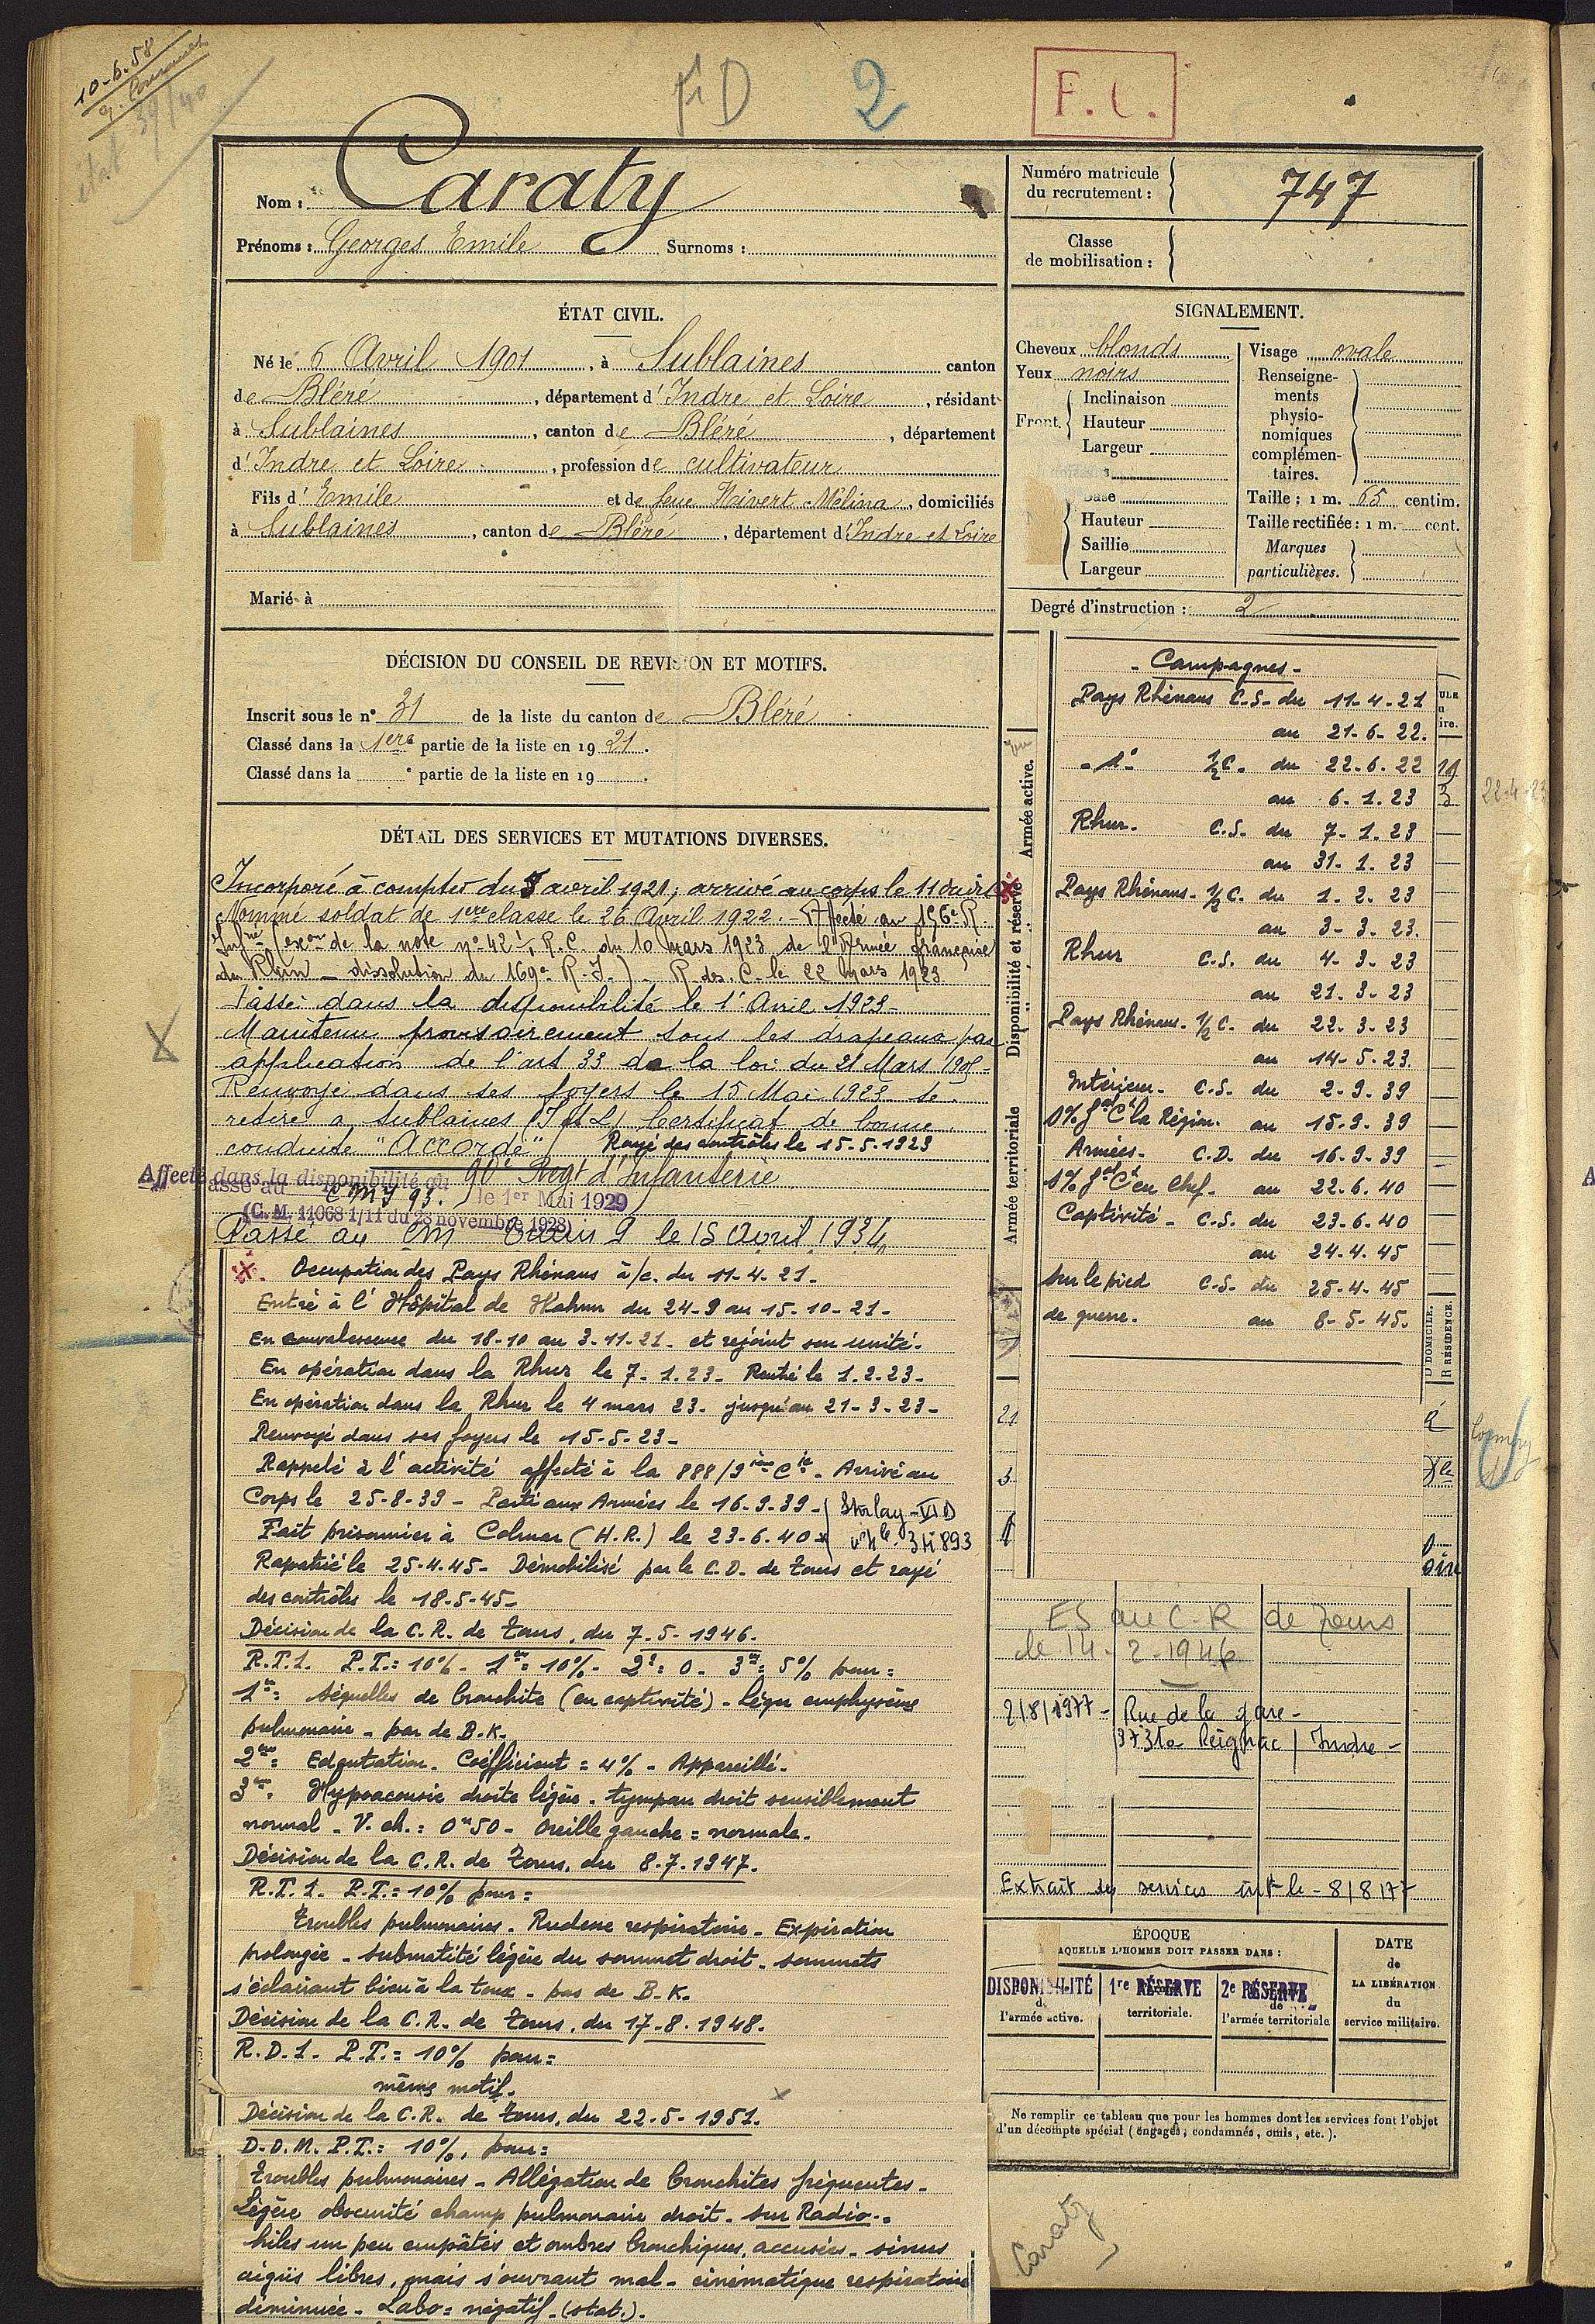 10-6-58
état 39/40
FD 2 F.C.
Nom : Caraty
Prénoms : Georges Emile Surnoms :
Numéro matricule du recrutement : 747
Classe de mobilisation :
ÉTAT CIVIL.
Né le 6 Avril 1901, à Sublaines canton
de Bléré, département d'Indre et Loire, résidant
à Sublaines, canton de Bléré, département
d'Indre et Loire, profession de cultivateur
Fils d'Emile et de feue Hivert Mélina, domiciliés
à Sublaines, canton de Bléré, département d'Indre et Loire
Marié à
SIGNALEMENT.
Cheveux blonds
Yeux noirs
Front.
Inclinaison
Hauteur
Largeur
Base
Hauteur
Saillie
Largeur
Visage ovale
Renseigne-
ments
physio-
nomiques
complémen-
taires.
Taille : 1 m. 65 centim.
Taille rectifiée : 1 m. cent.
Marques
particulières.
Degré d'instruction : 2
DÉCISION DU CONSEIL DE REVISION ET MOTIFS.
Inscrit sous le n° 31 de la liste du canton de Bléré
Classé dans la 1ere partie de la liste en 1921.
Classé dans la e partie de la liste en 19 .
DÉTAIL DES SERVICES ET MUTATIONS DIVERSES.
Incorporé à compter du 5 avril 1921; arrivé au corps le 11 avril
Nommé soldat de 1ere classe le 26 Avril 1922. - Affecté au 156e R.
Infrie (exon de la note no 42 R.C. du 10 Mars 1923 de l'Armée française
du Rhin - dissolution du 169e R.I.) R. des C. le 22 Mars 1923
Passé dans la disponibilité le 1er Avril 1923 -
Maintenu provisoirement sous les drapeaux par
application de l'art 33 de la loi du 21 Mars 1905 -
Renvoyé dans ses foyers le 15 Mai 1923 se
retire à Sublaines (I et L) Certificat de bonne
conduite "Accordé" Rayé des contrôles le 15-5-1923
Affecté dans la disponibilité au 90e Regt d'Infanterie
Passé au CMI 93. le 1er Mai 1929
(C.M. 11068 1/11 du 28 novembre 1928)
Passé au CM 9 le 15 Avril 1934
Occupation des Pays Rhénans à/c. du 11-4-21.
Entré à l'Hôpital de Hahum du 24-9 au 15-10-21-
En convalescence du 18-10 au 3-11-21. et rejoint son unité.
En opération dans la Rhur le 7-1-23- Rentré le 1-2-23-
En opération dans la Rhur le 4 mars 23- jusqu'au 21-3-23-
Renvoyé dans ses foyers le 15-5-23-
Rappelé à l'activité affecté à la 888/9ème Cie. Arrivé au
Corps le 25-8-39 - Parti aux Armées le 16-9-39-
Fait prisonnier à Colmar (H.R.) le 23-6-40
Stalag VI D
Rapatrié le 25-4-45- Démobilisé par le C.D. de Tours et rayé
des contrôles le 18-5-45-
Décision de la C.R. de Tours, du 7-5-1946.
R.T.1. P.T.= 10% - 1er= 10% - 2e= 0 - 3e= 5% pour =
1er= Séquelles de bronchite (en captivité) - léger emphysème
pulmonaire - pas de B.K.
2ème= Edentation. Coefficient = 4% - Appareillé.
3ème. Hypoacousie droite légère - tympan droit sensiblement
normal - V. ch. : 0m50 - Oreille gauche = normale.
Décision de la C.R. de Tours, du 8.7.1947.
R.T.1. P.T.= 10% pour =
troubles pulmonaires - Rudesse respiratoire - Expiration
prolongée - submatité légère du sommet droit - sommets
s'éclairant bien à la toux - pas de B.K.
Décision de la C.R. de Tours, du 17-8-1948.
R.D.1. P.T.= 10% pour =
même motif.
Décision de la C.R. de Tours, du 22-5-1951.
D.D.M. P.T.: 10%, pour =
Troubles pulmonaires - Allégation de bronchites fréquentes -
Légère obscurité champ pulmonaire droit - sur Radio :
hiles un peu empâtés et ombres bronchiques, accusées - sinus
aigüs libres, mais s'ouvrant mal - cinématique respiratoire
diminuée - Labo = négatif - (stat.).
- Campagnes -
Pays Rhénans C.S. du 11-4-21
au 21-6-22.
- d° - ½C. du 22-6-22
au 6-1-23
Rhur. C.S. du 7-1-23
au 31-1-23
Pays Rhénans. ½C. du 1-2-23
au 3-3-23.
Rhur C.S. du 4-3-23
au 21-3-23
Pays Rhénans. ½C. du 22-3-23
au 14-5-23.
Intérieur. C.S. du 2-9-39
S% Gal Ct la Région. au 15-9-39
Armées. C.D. du 16-9-39
S% Gal Ct en Chef. au 22-6-40
Captivité. C.S. du 23-6-40
au 24-4-45
Sur le pied C.S. du 25-4-45
de guerre. au 8-5-45.
Armée active.
Disponibilité et réserve
Armée territoriale
D DOMICILE.
R RÉSIDENCE.
22-4-23
ES au C-R de Tours
le 14-2-1946
2/8/1977 - Rue de la gare -
37310 Reignac / Indre -
Extrait des services le - 8/8/77
ÉPOQUE
À LAQUELLE L'HOMME DOIT PASSER DANS :
DISPONIBILITÉ de l'armée active.
1re RÉSERVE territoriale.
2e RÉSERVE de l'armée territoriale
DATE
de
LA LIBÉRATION
du
service militaire.
Ne remplir ce tableau que pour les hommes dont les services font l'objet
d'un décompte spécial (engagés, condamnés, omis, etc.).
Caraty